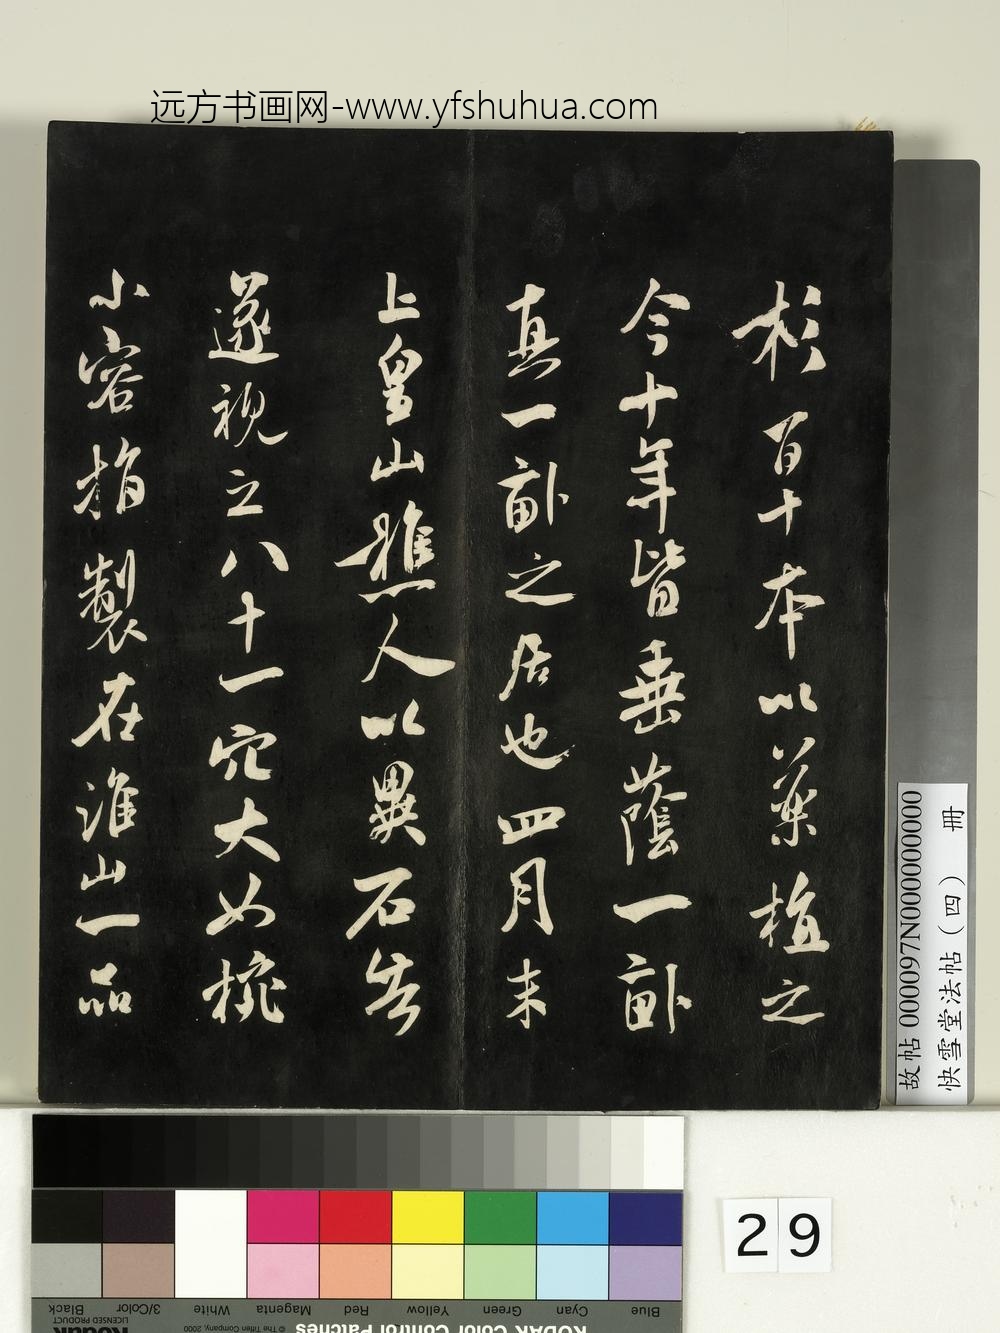 远方书画网-www.yfshuhua.com
杉百十本以藥植之
今十年皆垂蔭一畝
真一畝之居也四月末
上皇山樵人以異石告
遂視之八十一穴大如椀
小容指製在淮山一品
故帖 000097N000000000
快雪堂法帖（四） 冊
29
Black
3/Color
White
Magenta
Red
Yellow
Green
Cyan
Blue
Kodak
LICENSED PRODUCT
© The Tiffen Company, 2000
KODAK Color Control Patches